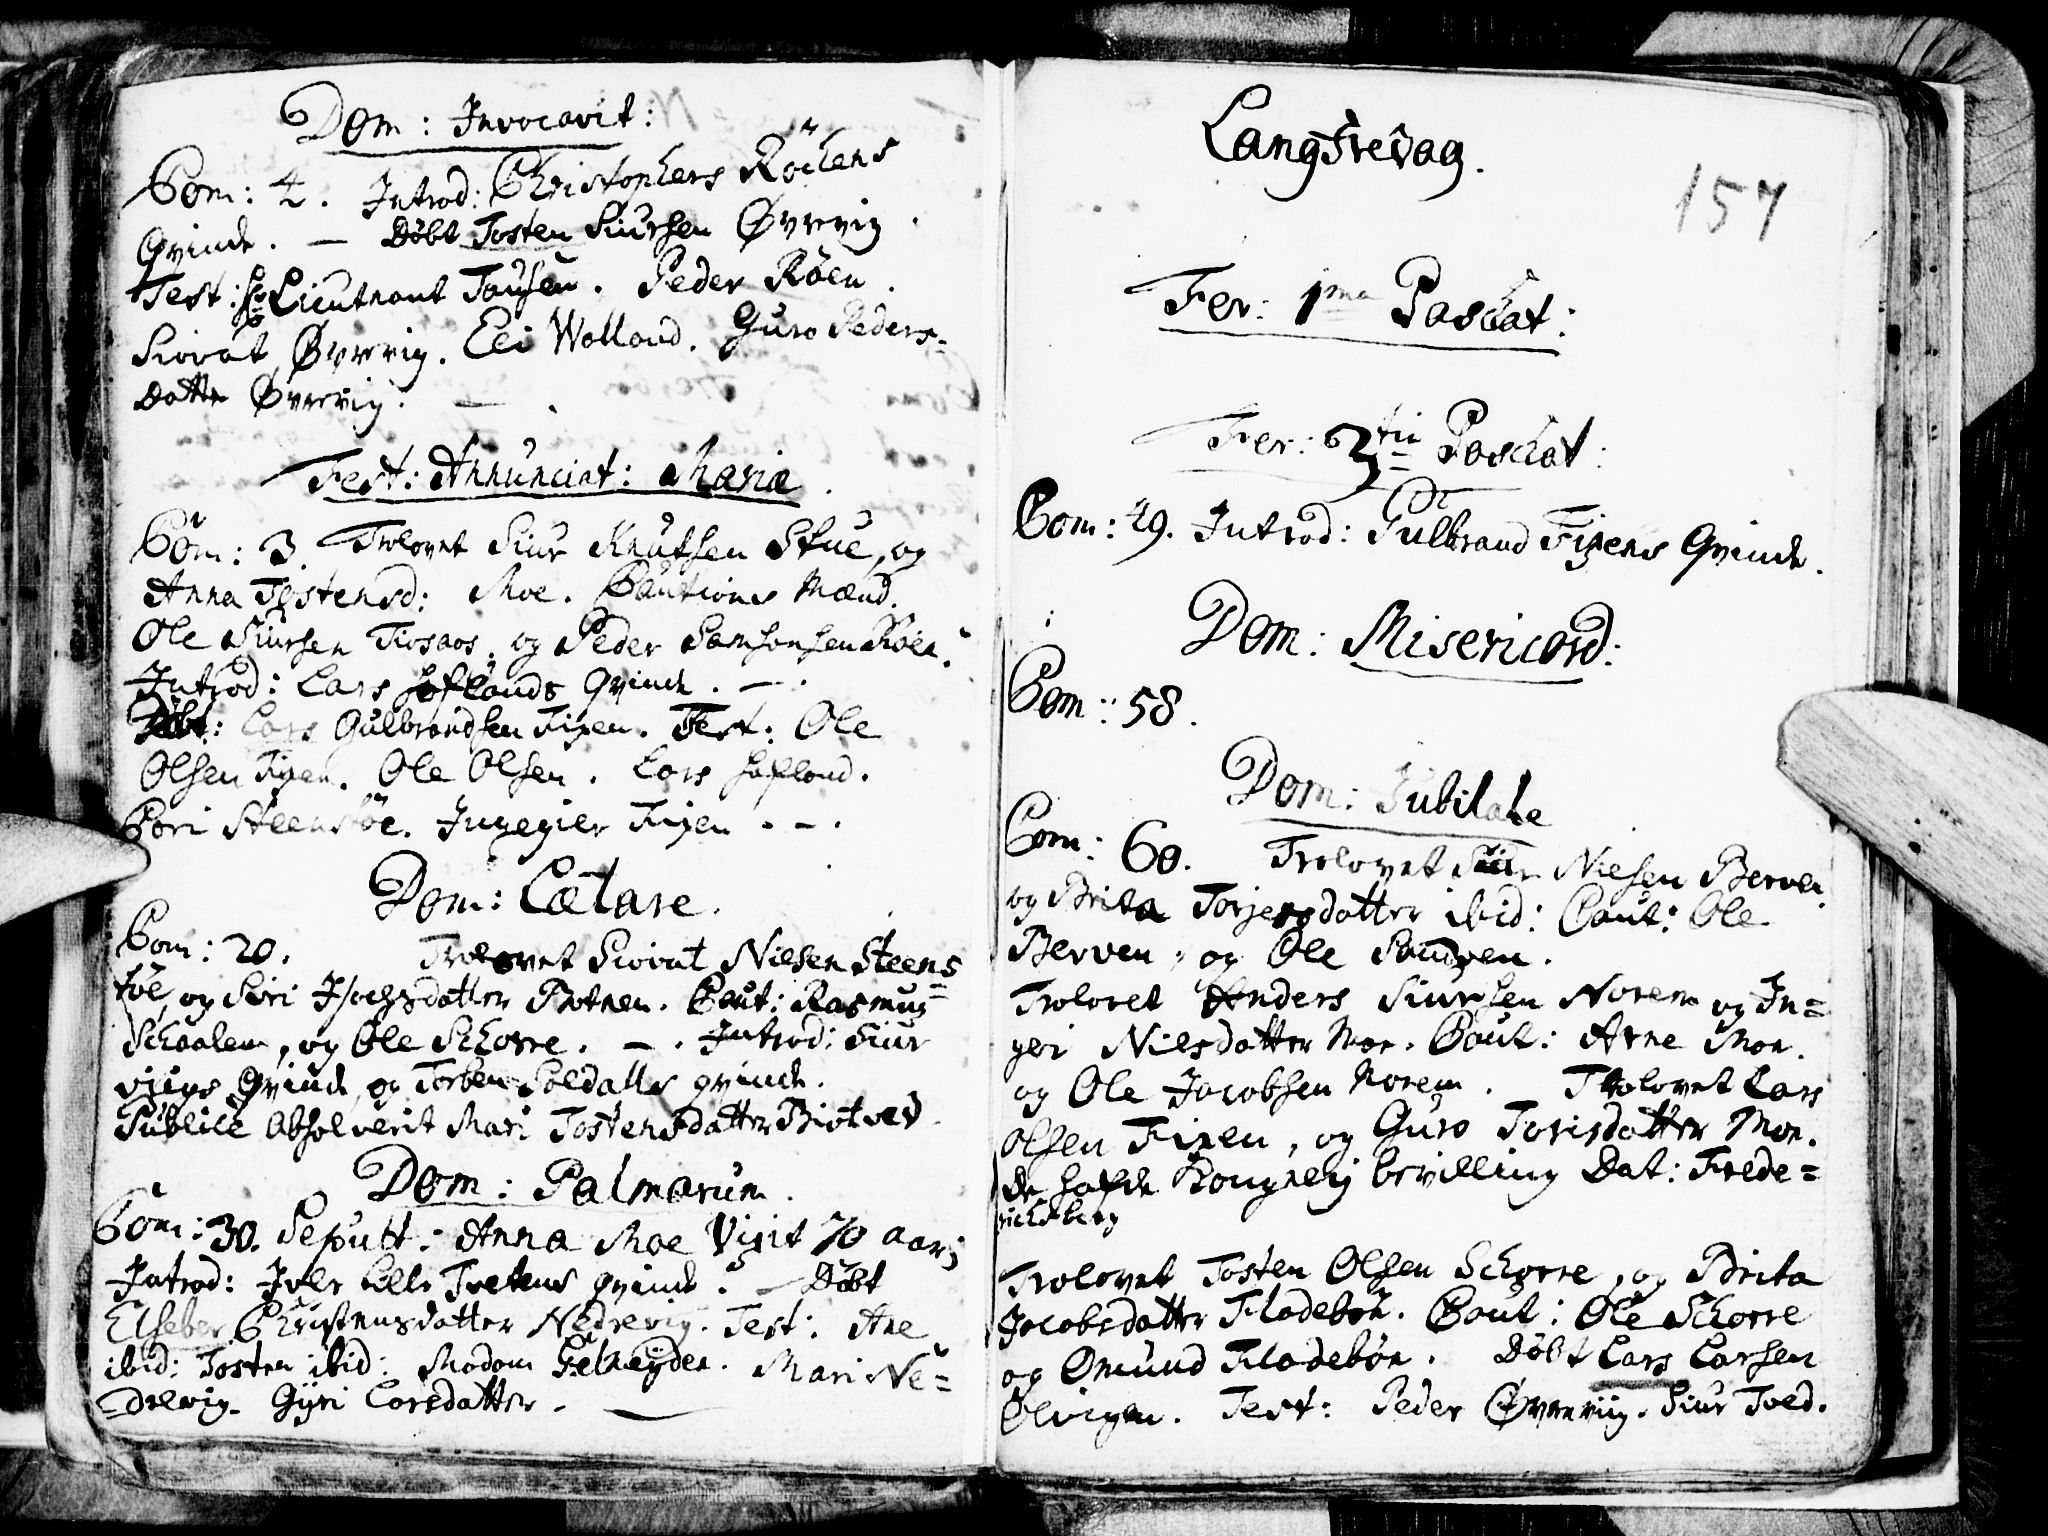 Dom: Invocavit:
Com: 4. Introd: Christophers Röthens
Qvinde. — Döbt Tosten Siursen Øvrevig.
Test: Lieutnant Tousen. Peder Röen.
Siovat Øvrevig. Eli Walland. Guro Peders=
Datter Øvrevig. —.
Fest: Annunciat: Mariæ.
Com: 3. Trolovet Siur Knutsen Stue, og
Anna Tostensd: Moe. Cautions Mænd.
Ole Siursen Tiosaas. og Peder Samsonsen Röen.
Introd: Lars Hoflands Qvinde. —.
Döbt: Lars Gulbrandsen Fixen. Test: Ole
Olsen Fixen. Ole Olsen. Lars Hofland.
Gori Steenstöe. Ingegier Fixen. —.
Dom: Lætare.
Com: 20. Trolovet Siovat Nielsen Steens=
töe, og Siri Botnen. Caut: Rasmus
Schaalen, og Ole Schorre. —. Introd: Siur
viigs Qvinde og Torben Soldatts qvinde.
Publice Absolverit Mari Tostensdatter Biotvet
Dom: Palmarum.
Com: 30. Sepult: Anna Moe Vixit 70 aar;
Introd: Iver Lille Tvetens qvinde. — Döbt
Elseber Christensdatter Nedrevig. Test: Ane
ibid: Tosten ibid: Madam Gelmeyden. Mari Ne=
drevig. Gyri Larsdatter. —
Langfredag.
157
Fer: 1ma Paschat:
Fer: 3tia Paschat:
Com: 49. Introd: Gulbrand Fixens Qvinde.
Dom: Misericord:
Com: 58.
Dom: Jubilate
Com: 60. Trolovet Siur Nielsen Berven
og Brita Torjersdatter ibid: Caut: Ole
Berven, og Ole Sandven.
Trolovet Anders Siursen Norem og In=
geri Nielsdatter Moe. Caut: Arne Moe.
og Ole Jacobsen Norem. Trolovet Lars
Olsen Fixen, og Guro Torisdatter Moe.
De hafde Kongelig bevilling Dat: Frede=
richsberg
Trolovet Tosten Olsen Schorre, og Brita
Jacobsdatter Fladebön. Caut: Ole Schorre
og Omund Fladebön. Döbt Lars Larsen
Olvigen. Test: Peder Øvreviig. Siur Tved.